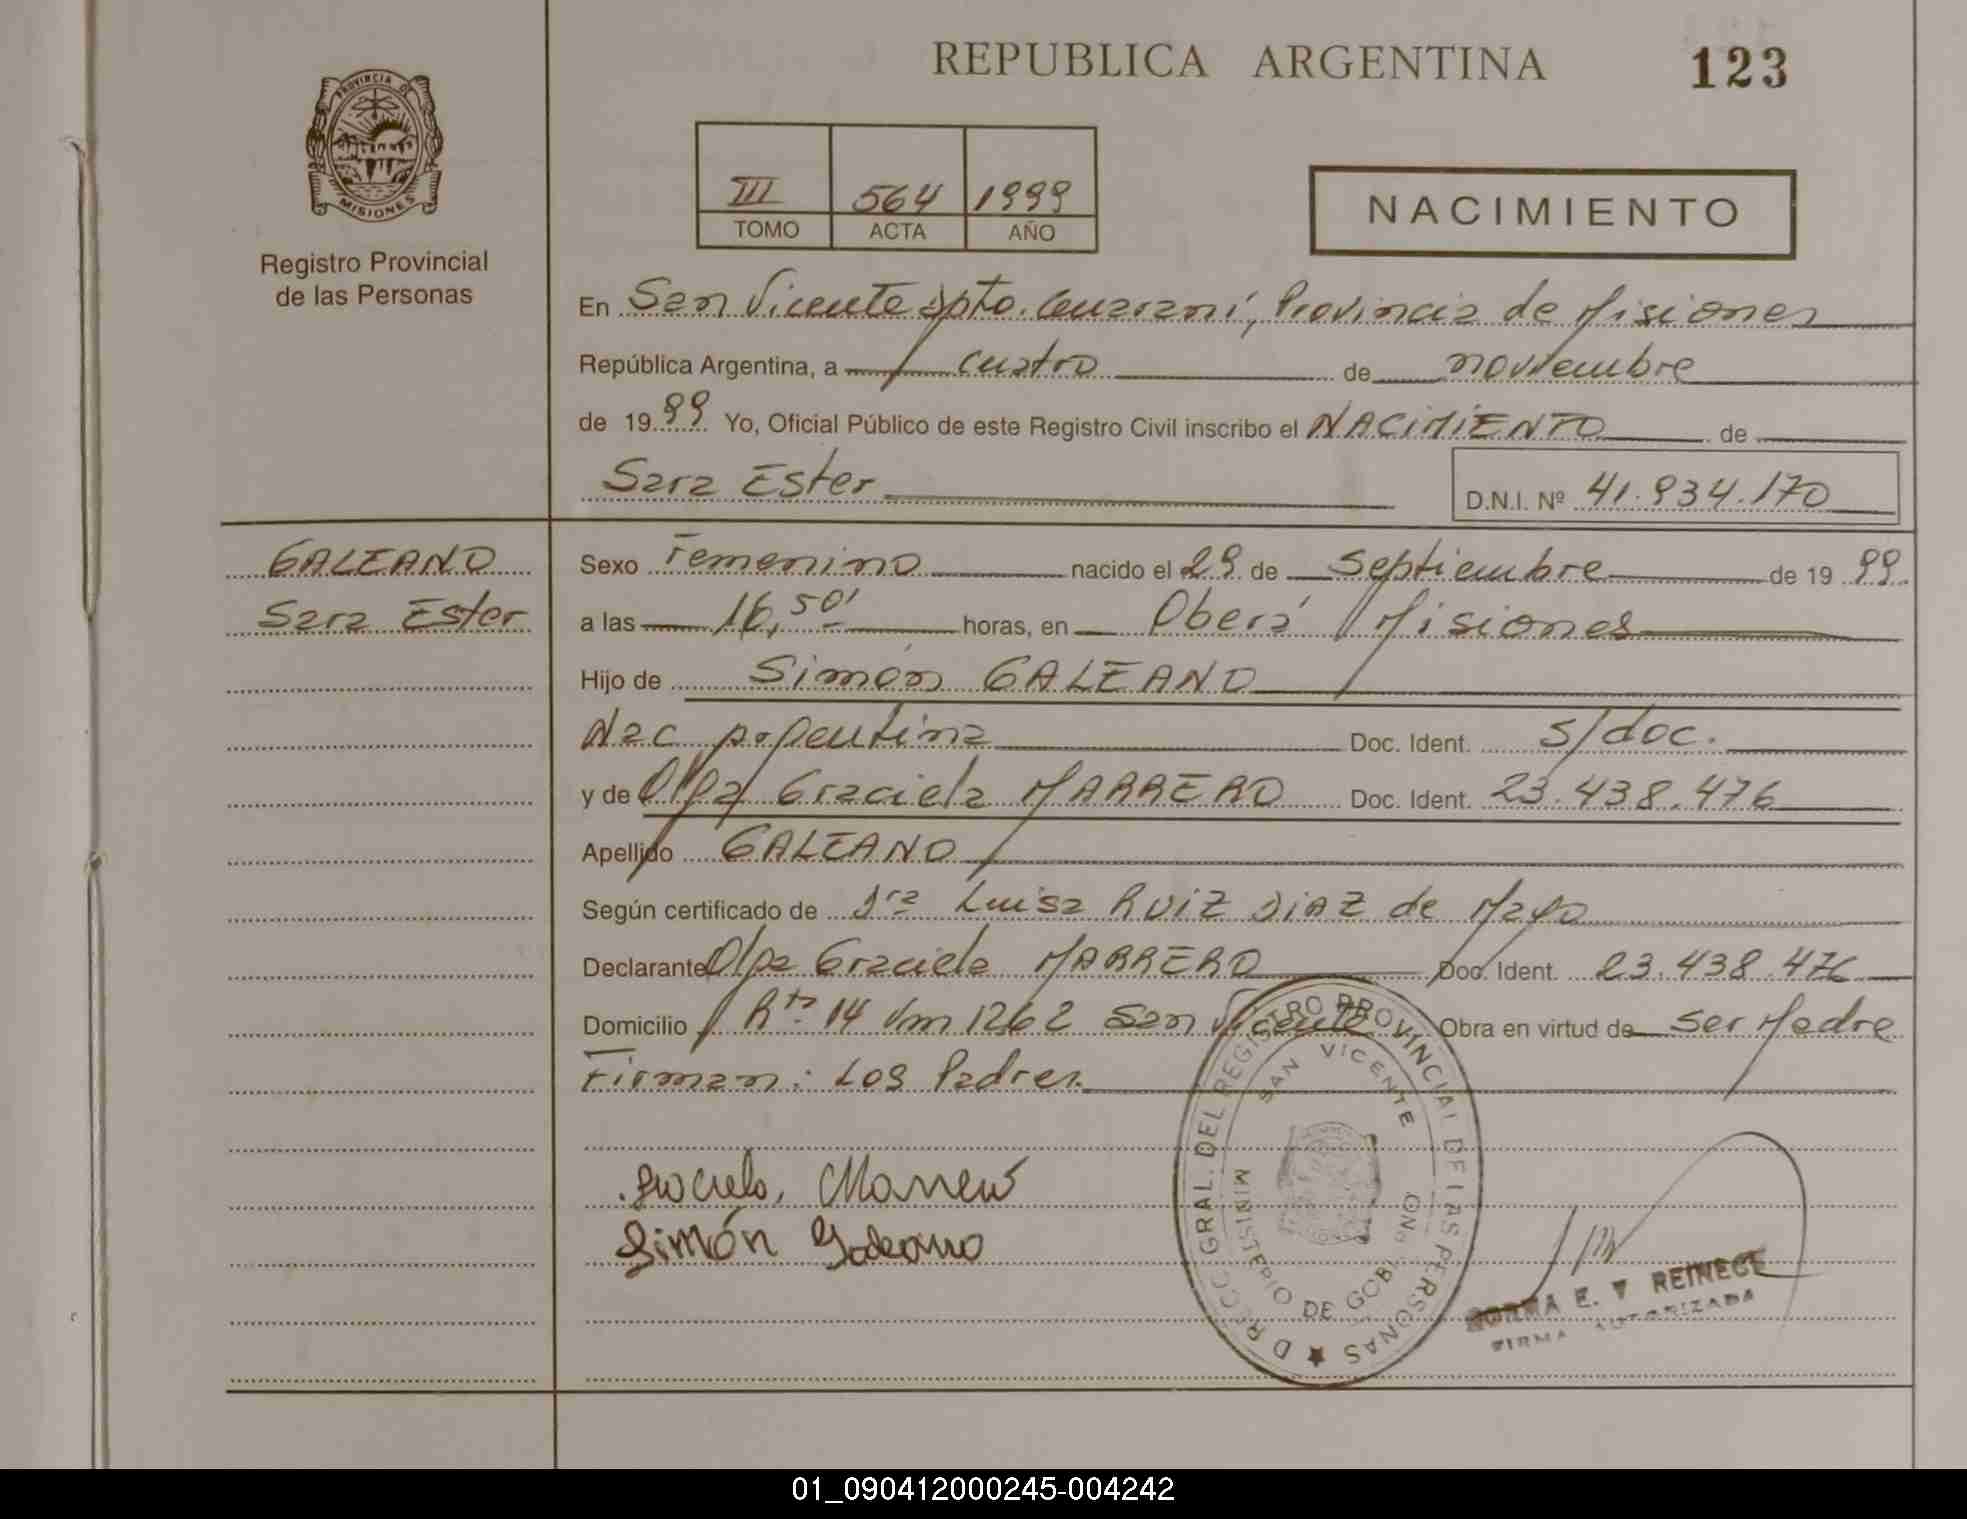 REPUBLICA ARGENTINA
123
PROVINCIA DE
MISIONES
Registro Provincial
de las Personas
III 564 1999
TOMO ACTA AÑO
NACIMIENTO
En San Vicente Dpto. Guaraní, Provincia de Misiones
República Argentina, a cuatro de noviembre
de 1999 Yo, Oficial Público de este Registro Civil inscribo el NACIMIENTO de
Sara Ester D.N.I. Nº 41.934.170
GALEANO
Sara Ester
Sexo Femenino nacido el 29 de Septiembre de 1999
a las 16,50' horas, en Oberá Misiones
Hijo de Simón GALEANO
Nac Argentina Doc. Ident. S/doc.
y de Olga Graciela MARRERO Doc. Ident. 23.438.476
Apellido GALEANO
Según certificado de Dra Luisa RUIZ DIAZ de Mayo
Declarante Olga Graciela MARRERO Doc. Ident. 23.438.476
Domicilio Rta 14 Km 1262 San Vicente Obra en virtud de Ser Madre
Firman: Los Padres.
Graciela, Marrero
Simón Galeano
DIRECC GRAL. DEL REGISTRO PROVINCIAL DE LAS PERSONAS
SAN VICENTE
MINISTERIO DE GOBIERNO
NORMA E. V REINEGE
FIRMA AUTORIZADA
01_090412000245-004242